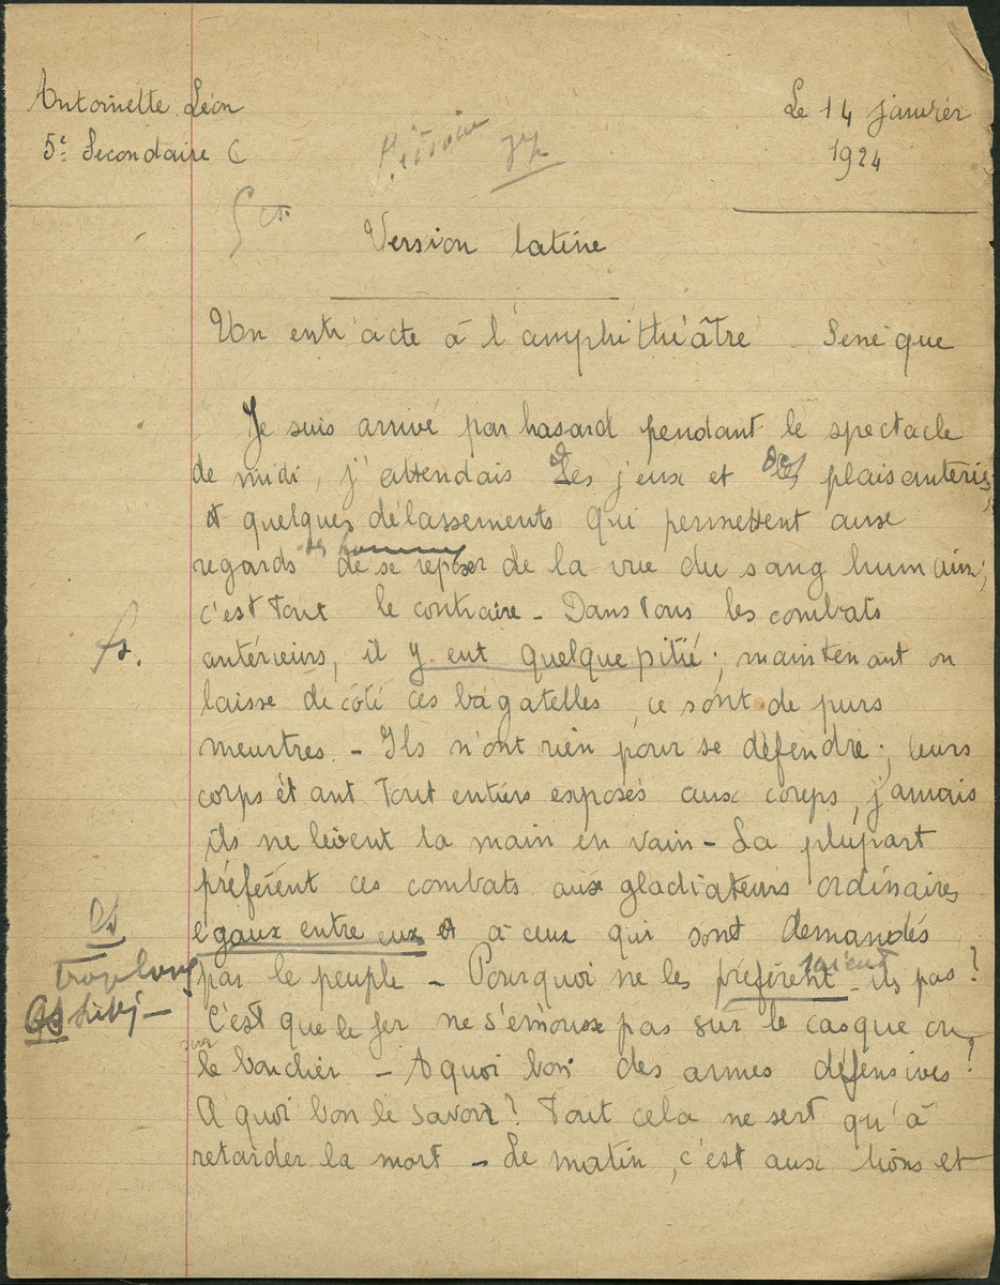 Antoinette Léon
Le 14 janvier
5e Secondaire C
1924
Version latine
Un entr'acte à l'amphithéâtre Senèque
Je suis arrivé par hasard pendant le spectacle
de midi, j'attendais des jeux et des plaisanteries,
et quelques délassements qui permettent aux
regards des hommes de se reposer de la vue du sang humain;
c'est tout le contraire - Dans tous les combats
fs.
antérieurs, il y eut quelque pitié; maintenant on
laisse de côté ces bagatelles, ce sont de purs
meurtres - Ils n'ont rien pour se défendre; leurs
corps étant tout entiers exposés aux coups, jamais
ils ne lèvent la main en vain - La plupart
préfèrent ces combats aux gladiateurs ordinaires
égaux entre eux et à ceux qui sont demandés
trop long
par le peuple - Pourquoi ne les préfèreraient-ils pas?
C'est que le fer ne s'émousse pas sur le casque ou
sur
le bouclier - A quoi bon des armes défensives?
A quoi bon le savoir? Tout cela ne sert qu'à
retarder la mort - Le matin, c'est aux lions et